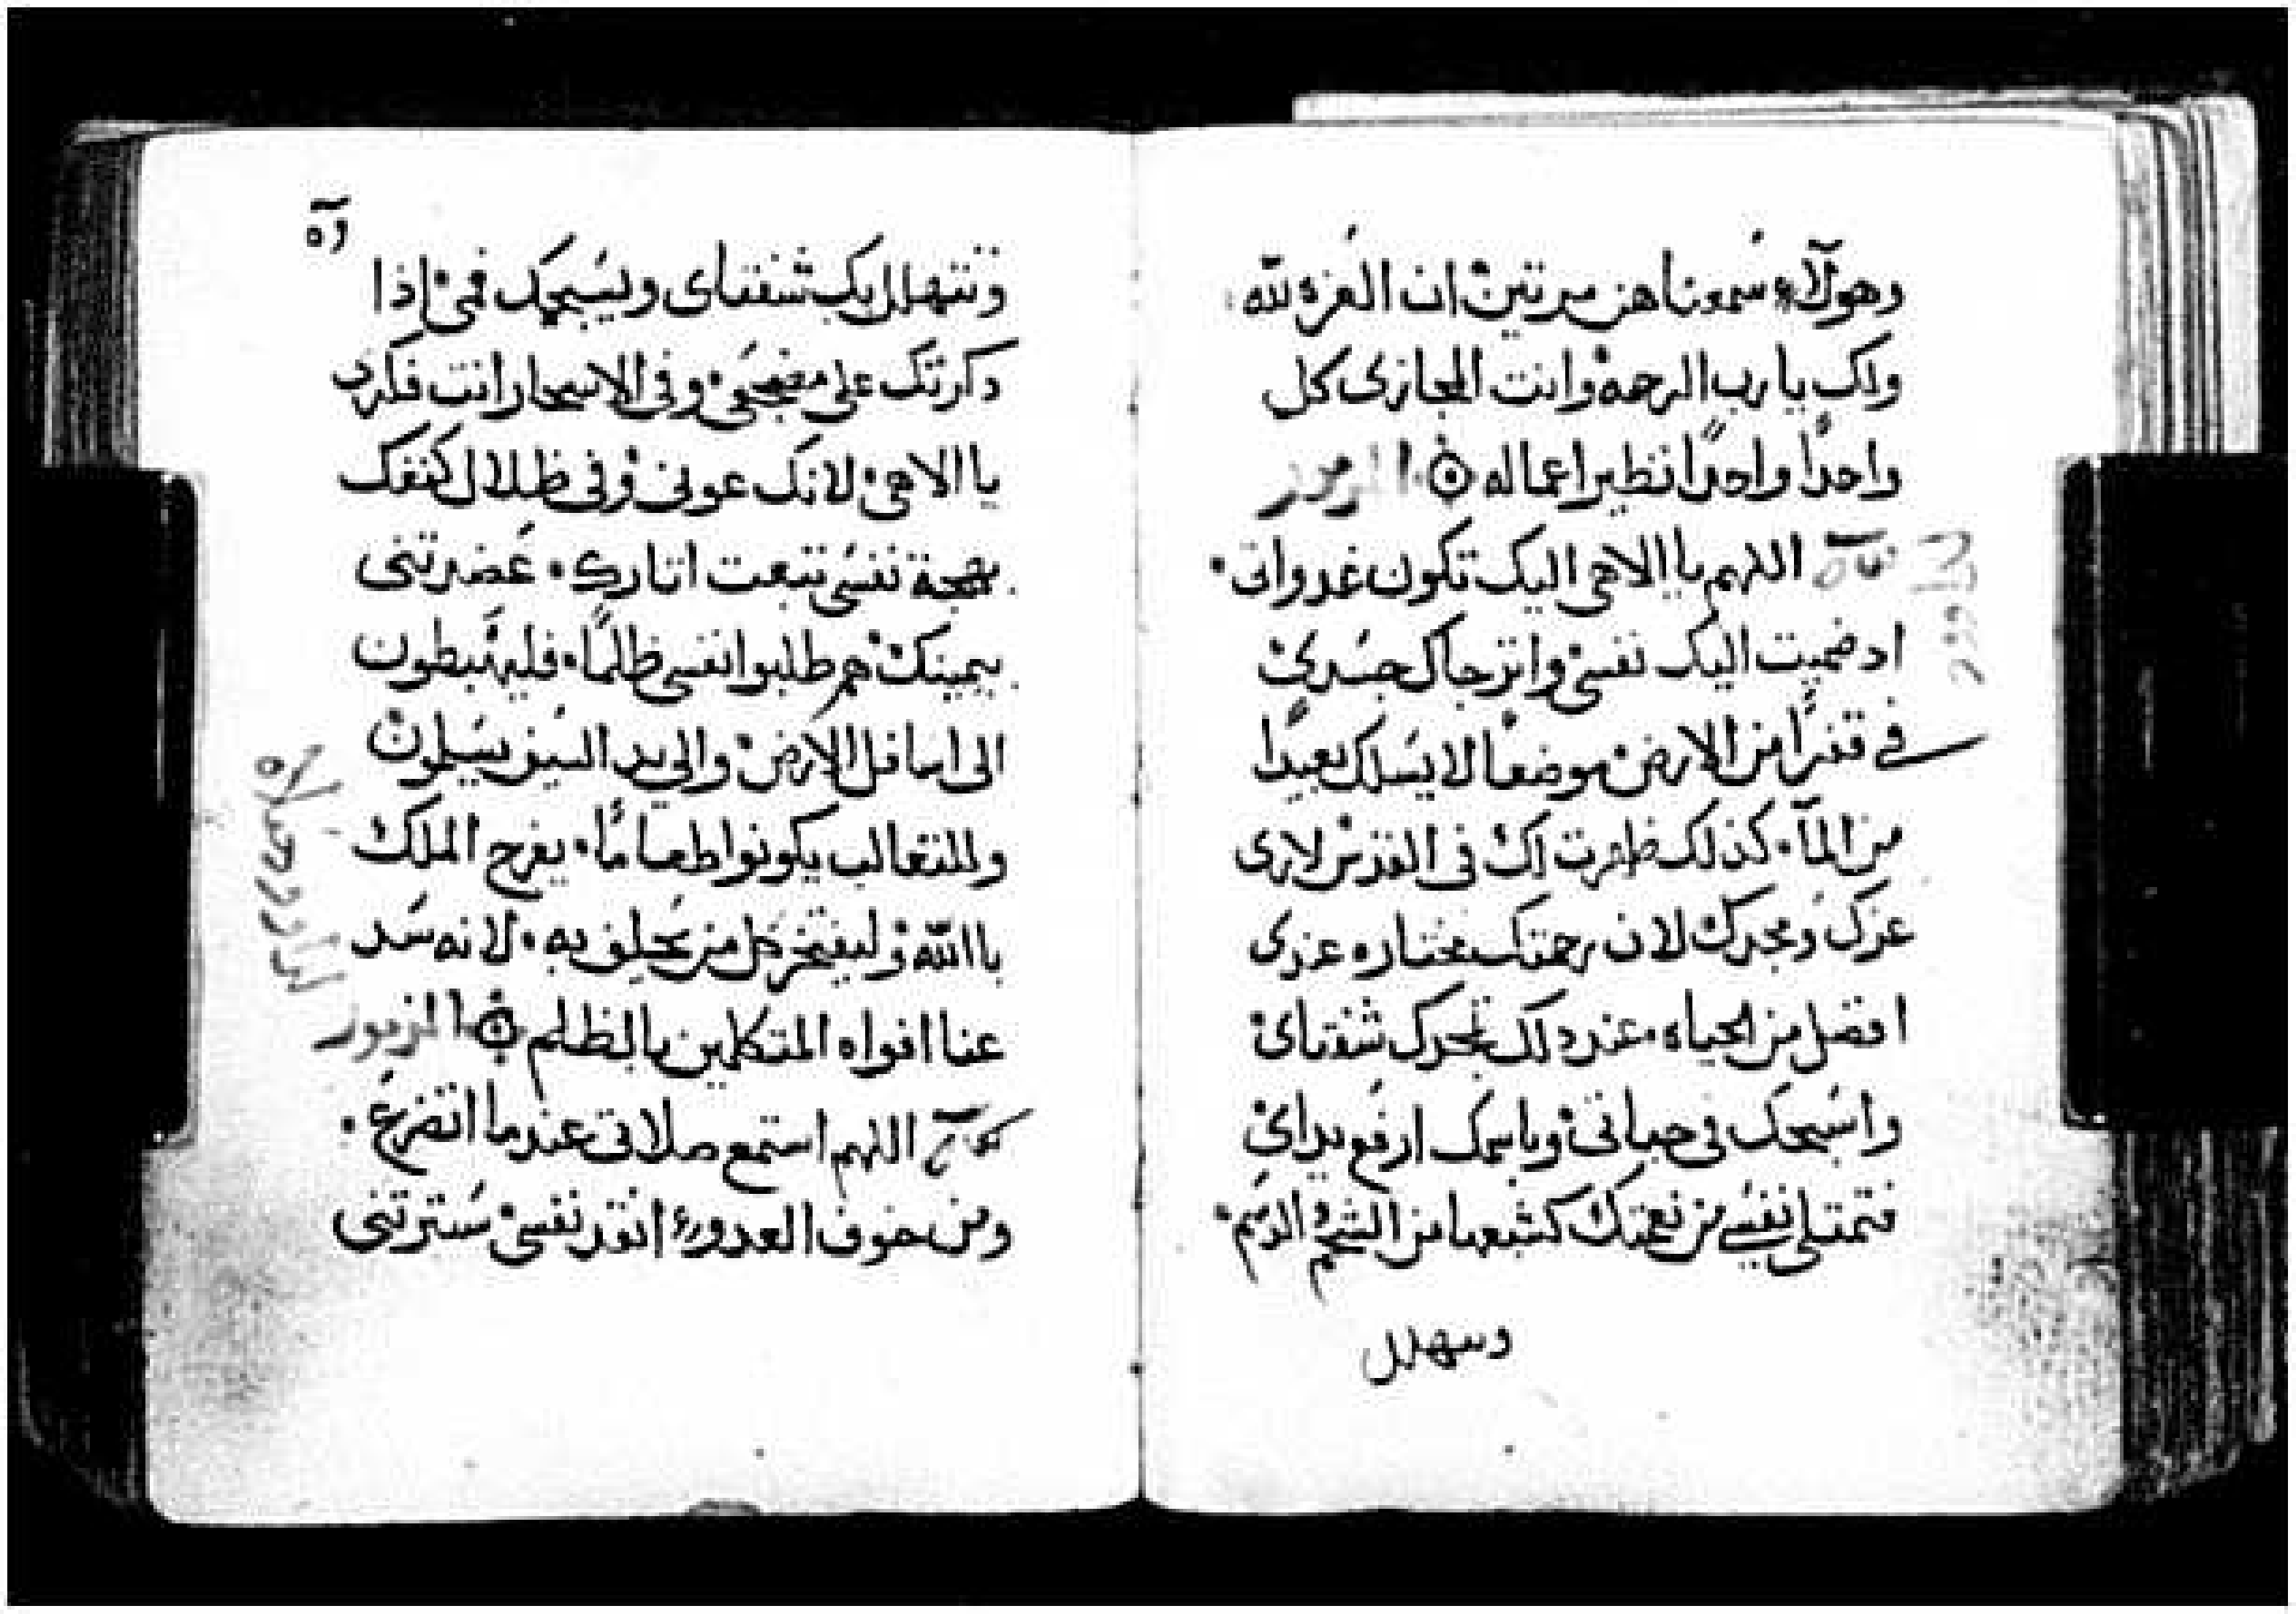 وهولآء سمعناهن مرتين ان العزه لله
ولك يا رب الرحمه وانت المجازى كل
واحدًا واحدًا نظير اعماله المزمور
اللهم يا الاهى اليك تكون غدواتى
اد ضميت اليك نفسى واترجاك جسدى
فى قفرًا من الارض موضعًا لا يسلك بعيدًا
من المآ كذلك ظهرت لك فى القدس لارى
عزك ومجدك لان رحمتك مختاره عندى
افضل من الحياه عند دلك تحرك شفتاى
واسبحك فى حياتى وباسمك ارفع يداى
فتمتلى نفسى من نعمتك كشبعها من الشحم الدسم
وسهلل
وتتهلل بك شفتاى ويسبحك فمى اذا
دكرتك على مضجعى وفى الاسحار انت فكرى
يا الاهى لانك عونى وفى ظلال كنفك
بهجة نفسى تبعت اتارك عضدتنى
يمينك هم طلبوا نفسى ظلمًا فليهبطون
الى اسافل الارض والى يد السيف يسلمون
وللتعالب يكونوا طعامًا يفرح الملك
با الله وليفتخر كل من يحلف به لانه سد
عنا افواه المتكلمين بالظلم المزمور
اللهم استمع صلاتى عندما اتضرع
ومن خوف العدو انقد نفسى سترتنى